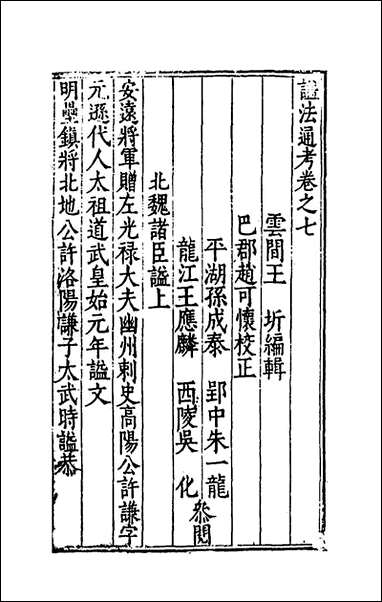 諡法通考卷之七
雲間王　圻編輯
巴郡趙可懷校正
平湖孫成泰　郢中朱一龍
龍江王應麟　西陵吳　化
叅閱
北魏諸臣諡上
安遠將軍贈左光祿大夫幽州刺史高陽公許謙字
元遜代人太祖道武皇始元年諡文
明壘鎮將北地公許洛陽謙子太武時諡恭